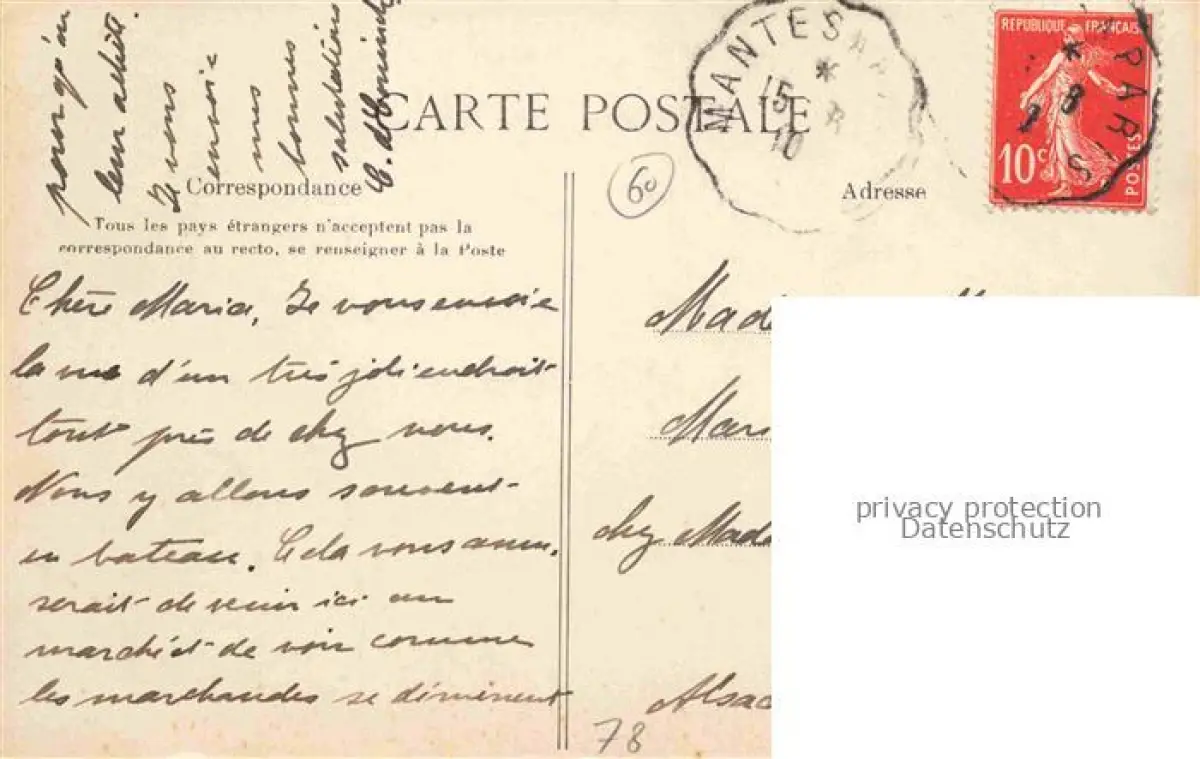 pour qu'on
leur achète.
Je vous
envoie
mes
bonnes
salutations
CARTE POSTALE
MANTES A PARIS
15
10
* 8
RÉPUBLIQUE FRANÇAISE
10c
POSTES
60
Correspondance
Adresse
Tous les pays étrangers n'acceptent pas la
correspondance au recto, se renseigner à la Poste
Chère Maria, Je vous envoie
la vue d'un très joli endroit
tout près de chez vous.
Nous y allons souvent
en bateau. Cela vous amu.
serait de venir ici au
marché et de voir comme
les marchandes se démènent
Made
Mar
chez Mada
Alsac
78
privacy protection
Datenschutz